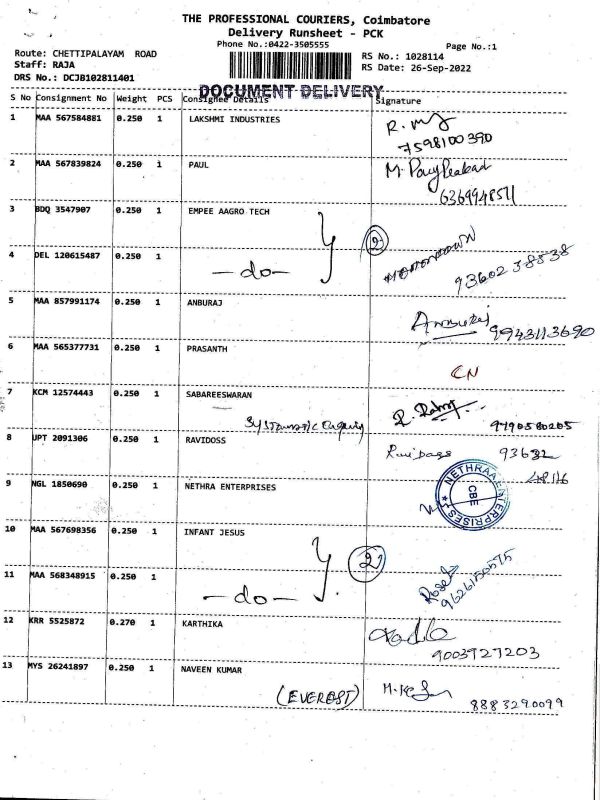 THE PROFESSIONAL COURIERS, Coimbatore
Delivery Runsheet - PCK
Phone No.:0422-3505555
Page No.:1
Route: CHETTIPALAYAM ROAD
RS No.: 1028114
Staff: RAJA
RS Date: 26-Sep-2022
DRS No.: DCJB102811401
DOCUMENT DELIVERY
S No Consignment No Weight PCS Consignee Details Signature
1 MAA 567584881 0.250 1 LAKSHMI INDUSTRIES
7598100390
2 MAA 567839824 0.250 1 PAUL
3 BDQ 3547907 0.250 1 EMPEE AAGRO TECH
2
4 DEL 120615487 0.250 1
-do-
93602 38538
5 MAA 857991174 0.250 1 ANBURAJ
Anburaj 9943113690
6 MAA 565377731 0.250 1 PRASANTH
CN
7 KCM 12574443 0.250 1 SABAREESWARAN
9790580205
8 UPT 2091306 0.250 1 RAVIDOSS
Ravidoss 93632
48116
9 NGL 1850690 0.250 1 NETHRA ENTERPRISES
NETHRAA ENTERPRISES CBE
10 MAA 567698356 0.250 1 INFANT JESUS
2
11 MAA 568348915 0.250 1
-do-
9626150575
12 KRR 5525872 0.270 1 KARTHIKA
9003927203
13 MYS 26241897 0.250 1 NAVEEN KUMAR
(EVEREST)
8883290099